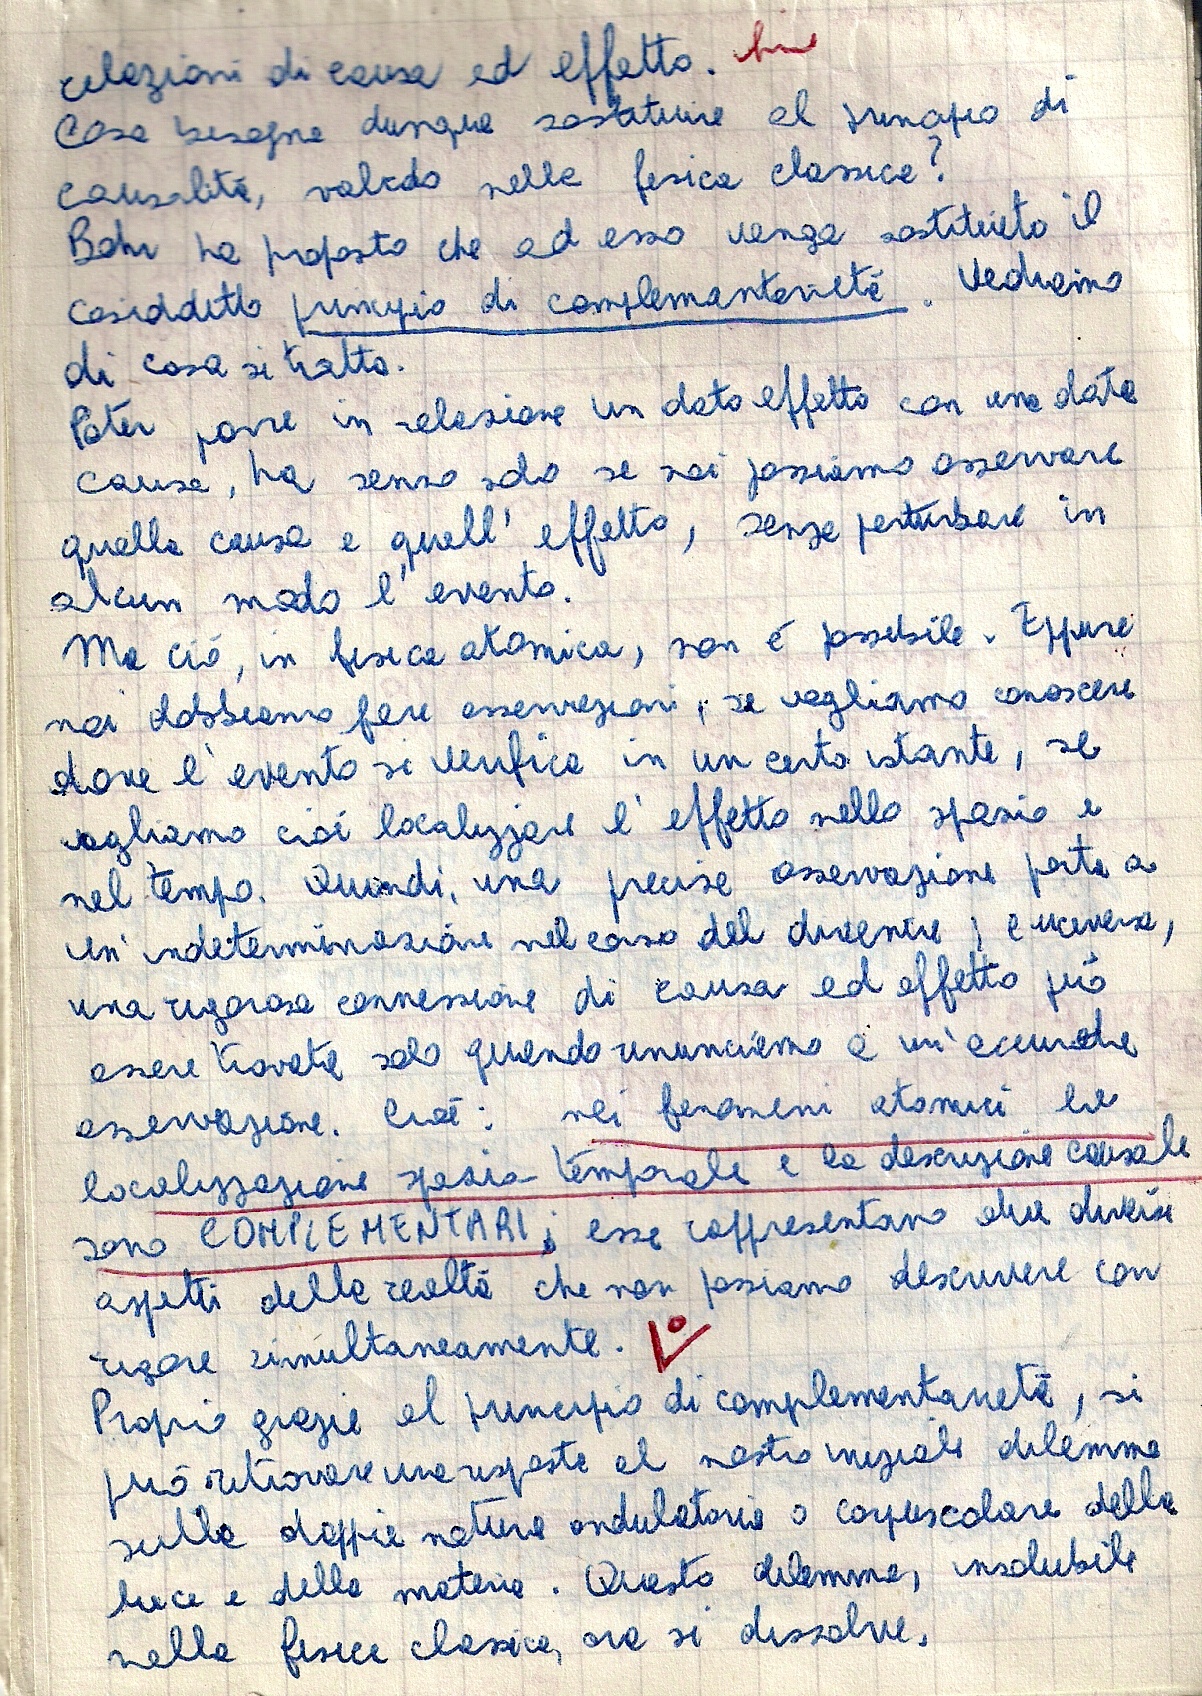 relazioni di causa ed effetto.
Cosa bisogna dunque sostituire al principio di
causalità, valido nella fisica classica?
Bohr ha proposto che ad esso venga sostituito il
cosiddetto principio di complementarietà. Vedremo
di cosa si tratta.
Poter porre in relazione un dato effetto con una data
causa, ha senso solo se noi possiamo osservare
quella causa e quell'effetto, senza perturbare in
alcun modo l'evento.
Ma ciò, in fisica atomica, non è possibile. Eppure
noi dobbiamo fare osservazioni, se vogliamo conoscere
dove l'evento si verifica in un certo istante, se
vogliamo cioè localizzare l'effetto nello spazio e
nel tempo. Quindi, una precisa osservazione porta a
un'indeterminazione nel corso del divenire; e viceversa,
una rigorosa connessione di causa ed effetto può
essere trovata solo quando rinunciamo a un'accurata
osservazione. Cioè: nei fenomeni atomici la
localizzazione spazio-temporale e la descrizione causale
sono COMPLEMENTARI; esse rappresentano due diversi
aspetti della realtà che non possiamo descrivere con
rigore simultaneamente.
Proprio grazie al principio di complementarietà, si
può ritrovare una risposta al nostro iniziale dilemma
sulla doppia natura ondulatoria o corpuscolare della
luce e della materia. Questo dilemma, insolubile
nella fisica classica, ora si dissolve.